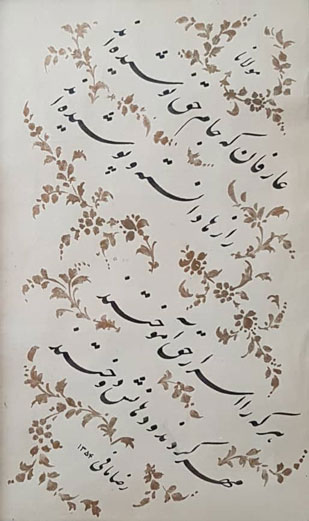 مولانا
عارفان که جام حق نوشیده‌اند
رازها دانسته و پوشیده‌اند
هر که را اسرار حق آموختند
مهر کردند و دهانش دوختند
رضا مافی ۱۳۵۴